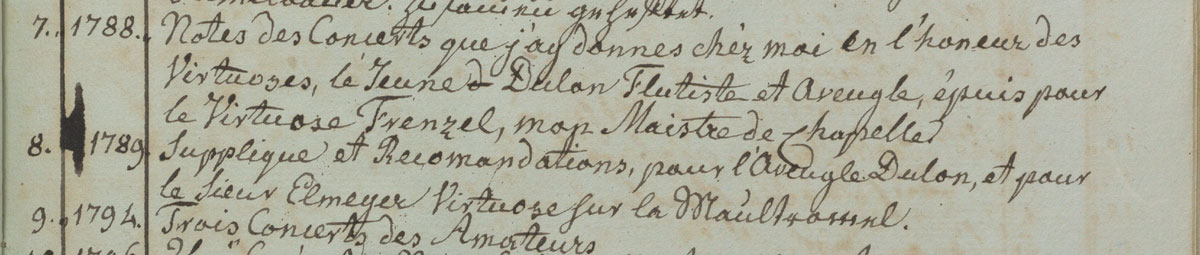 zusammen geheftet.
7. 1788. Notes des Concerts que j'ay donnes chéz moi en l'honeur des
Virtuoses, le Jeune Dulon Flutiste et Aveugle, épuis pour
le Virtuose Frenzel, mon Maistre de Chapelle
8. 1789. Supplique et Recomandations, pour l'Aveugle Dulon, et pour
le Sieur Elmeyer Virtuose sur la Maultromel.
9. 1794. Trois Concerts des Amateurs